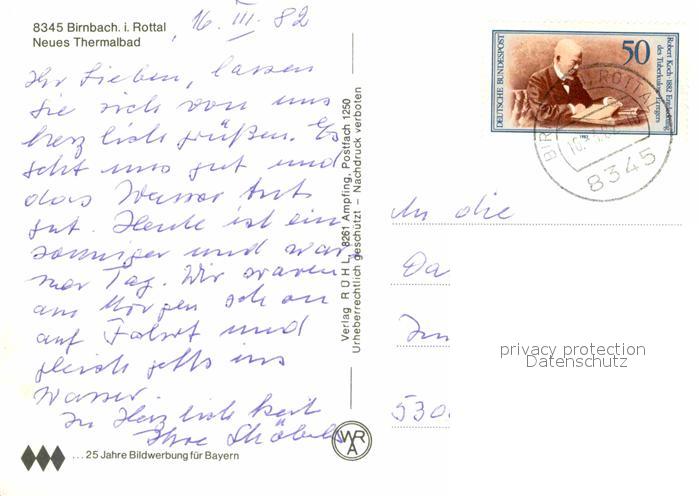 8345 Birnbach. i. Rottal
Neues Thermalbad
16. III. 82
Ihr Lieben, lassen
Sie sich von uns
herzlich grüßen. Es
geht uns gut und
das Wasser tut
gut. Heute ist ein
sonniger und war
mer Tag. Wir waren
am Morgen schon
auf Fahrt und
gleich gehts ins
Wasser.
In Herzlichkeit
Ihre
... 25 Jahre Bildwerbung für Bayern
Verlag RÜHL, 8261 Ampfing, Postfach 1250
Urheberrechtlich geschützt – Nachdruck verboten
WRA
DEUTSCHE BUNDESPOST
50
Robert Koch · 1882 Entdeckung
des Tuberkulose-Erregers
1982
8345
An die
Da
530
privacy protection
Datenschutz